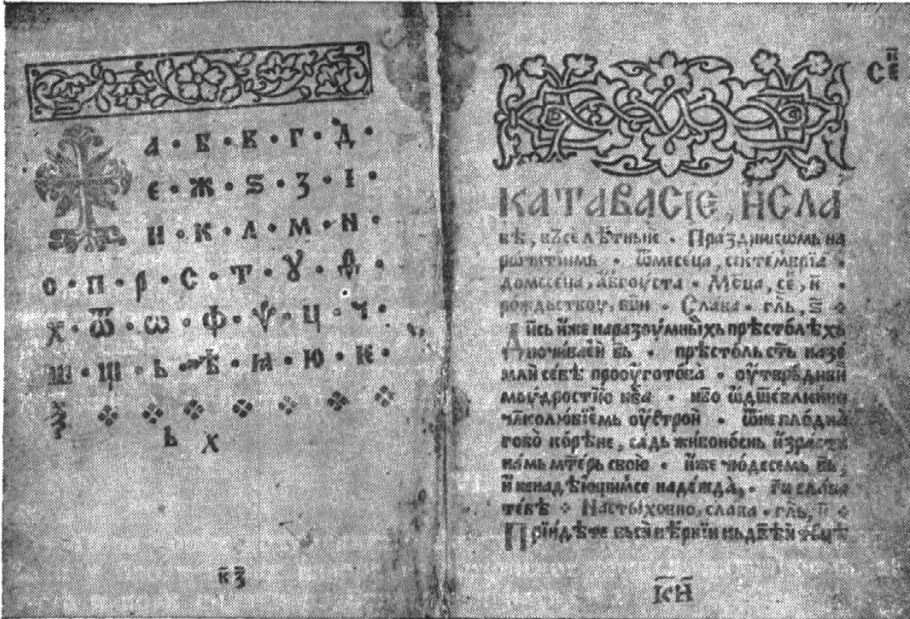 А · Б · В · Г · Д ·
Є · Ж · Ѕ · З · І ·
И · К · Л · М · Н ·
О · П · Р · С · Т · Ꙋ ·
Х · Ѿ · Ѡ · Ф · Ѱ · Ц · Ч ·
Ш · Щ · Ь · Ѣ · Ꙗ · Ю · Ѥ ·
Ѯ
Ь Х
к҃з
С
КАТАВАСІЕ, ИСЛА
вѣ, въселѣтные · Праздникѡмь на
ѿмесеца, сектемврїа ·
домесеца, аѵгоуста · Мс҃ца, се҃, и
рождьствоу, бц҃и · Слава · гль, ѕ҃
Дн҃сь иже наразоумныхь прѣстолѣхь
почиваеи бь · прѣстоль ст҃ь назе
мли себѣ проуготова · оутврьдивы
моудростїю нб҃са · ибо ѿдш҃евленно
чл҃колюбїемь оустрои · ѿнеплодна
гобо корѣне, садь живоносьнь израсти
намь мт҃ерь свою · иже чюдесемь бь,
и ненадѣющимсе надежда, · Ги слава
тебѣ Настыховно, слава · гль, и҃
Прїидѣте въси вѣрнїи кьдв҃ѣи
к҃и